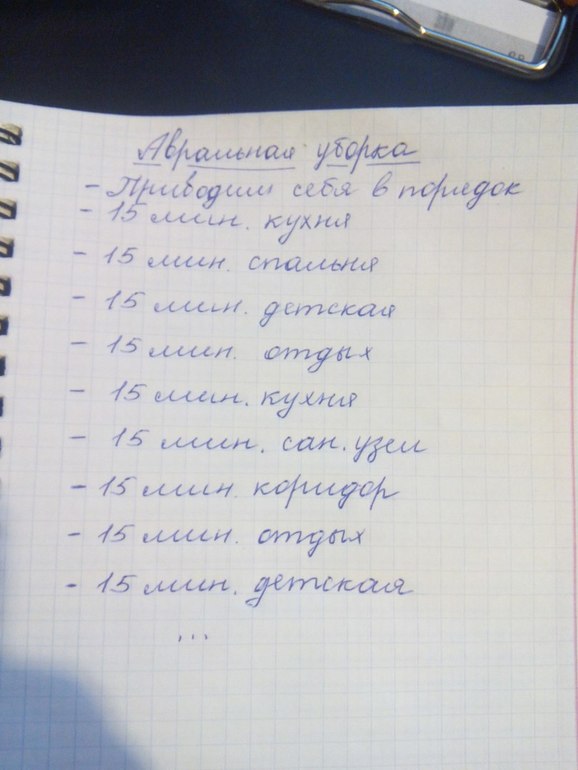 Авральная уборка
- Приводим себя в порядок
- 15 мин. кухня
- 15 мин. спальня
- 15 мин. детская
- 15 мин. отдых
- 15 мин. кухня
- 15 мин. сан. узел
- 15 мин. коридор
- 15 мин. отдых
- 15 мин. детская
...